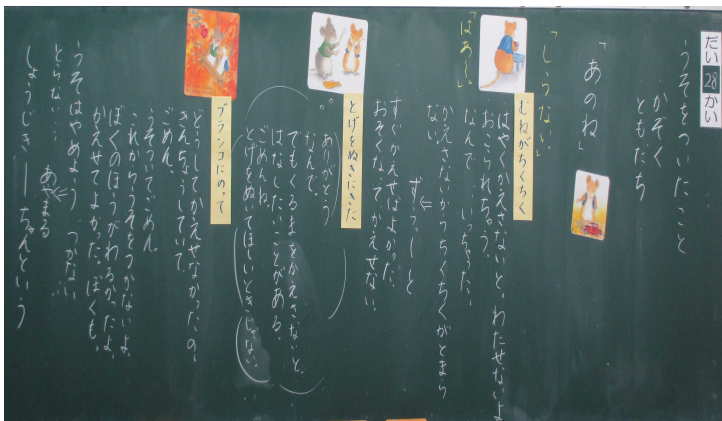 だい28かい
うそをついたこと
かぞく
ともだち
「あのね」
「しらない」
「はあ〜」
むねがちくちく
はやくかえさないと、わたせないよ
おこられちゃう。
なんで いっちゃった。
かえさないからちくちくがとまら
ない。
⇓
ずっと
すぐかえせばよかった。
おそくなって、かえせない。
とげをぬきにきた
ありがとう
なんで。
でもくるまをかえさないと。
はなしたいことがある。
ごめんね。
とげをぬいてほしいときじゃない。
ブランコにのって
どうしてかえせなかったの。
きんちょうしていて。
ごめん。
うそついてごめん。
これからうそをつかないよ。
ぼくのほうがわるかったよ。
かえせてよかった。ぼくも。
うそはやめよう つかない
とらない…
⇓
あやまる
しょうじき――ちゃんという